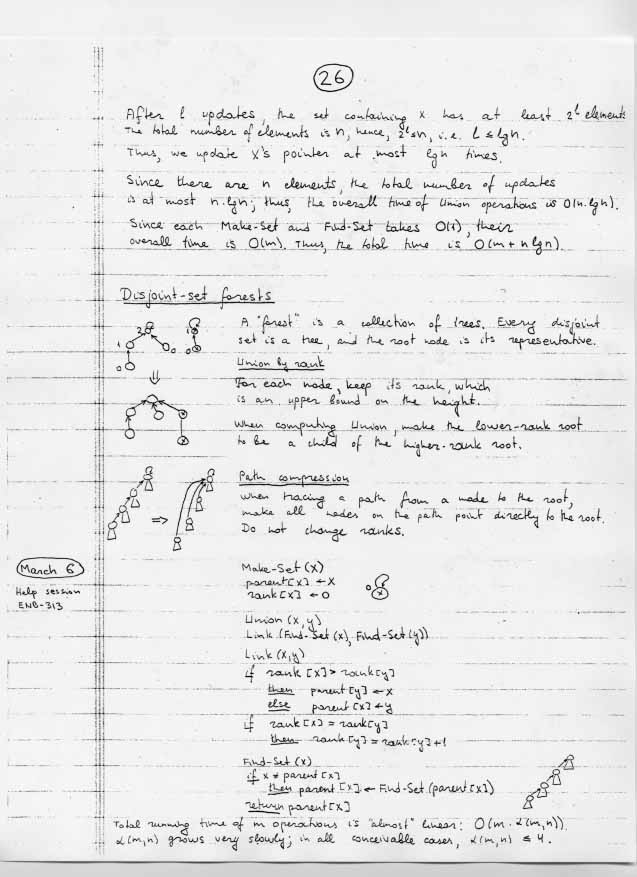 26
After l updates, the set containing x has at least 2^l elements
The total number of elements is n, hence, 2^l ≤ n, i.e. l ≤ lg n.
Thus, we update x's pointer at most lg n times.
Since there are n elements, the total number of updates
is at most n·lg n; thus, the overall time of Union operations is O(n·lg n).
Since each Make-Set and Find-Set takes O(1), their
overall time is O(m). Thus, the total time is O(m + n lg n).
Disjoint-set forests
A "forest" is a collection of trees. Every disjoint
set is a tree, and the root node is its representative.
Union by rank
For each node, keep its rank, which
is an upper bound on the height.
When computing Union, make the lower-rank root
to be a child of the higher-rank root.
Path compression
When tracing a path from a node to the root,
make all nodes on the path point directly to the root.
Do not change ranks.
March 6
Help session
ENB-313
Make-Set (x)
parent[x] ← x
rank[x] ← 0
0 x
Union (x,y)
Link (Find-Set(x), Find-Set(y))
Link (x,y)
if rank[x] > rank[y]
then parent[y] ← x
else parent[x] ← y
if rank[x] = rank[y]
then rank[y] = rank[y]+1
Find-Set (x)
if x ≠ parent[x]
then parent[x] ← Find-Set (parent[x])
return parent[x]
Total running time of m operations is "almost" linear: O(m · α(m,n)).
α(m,n) grows very slowly; in all conceivable cases, α(m,n) ≤ 4.